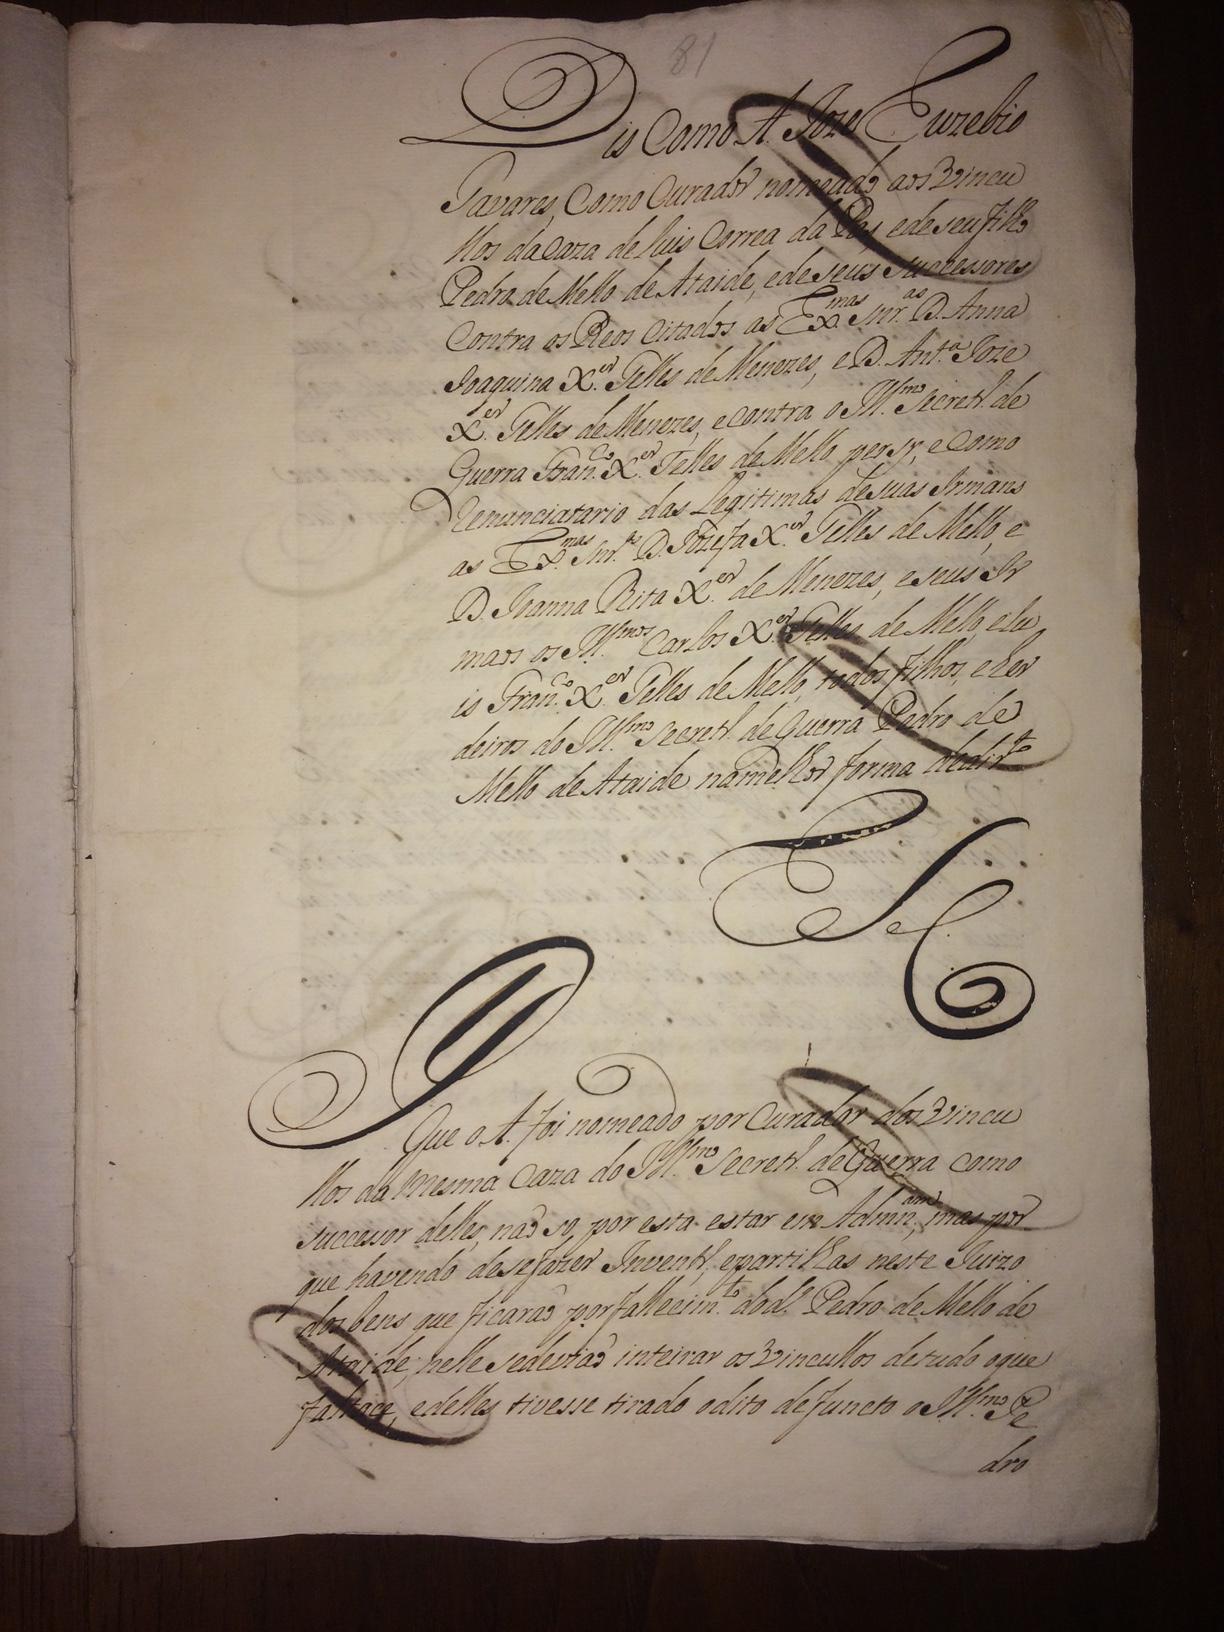 81
Dis Como A. Joze Euzebio
Tavares, Como Curador nomeado aos Vincu
llos da Caza de Luis Correa da Pas e de seu filho
Pedro de Mello de Ataide, e de seus successores
Contra os Reos Citados as Ex.mas Snr.as D. Anna
Joaquina X.er Telles de Menezes, e D. Ant.a Joze
X.er Telles de Menezes, e contra o Ill.mo Secretr.o de
Guerra Fran.co X.er Telles de Mello per sy, e Como
Renunciatario das Legitimas de suas Irmans
as Ex.mas Snr.as D. Jozefa X.er Telles de Mello, e
D. Joanna Rita X.er de Menezes, e seus Ir
maos os Ill.mos Carlos X.er Telles de Mello, e Lu
is Fran.co X.er Telles de Mello, todos filhos, e Her
deiros do Ill.mo Secretr.o de Guerra Pedro de
Mello de Ataide na melhor forma de dir.to
E S C
P
Que o A. foi nomeado por Curador dos Vincu
llos da mesma Caza do Ill.mo Secretr.o de Guerra como
successor delles, naõ so, por esta estar em Admn.am, mas por
que havendo de se fazer Inventr.o, e partilhas neste Juizo
dos bens que ficaraõ por fallecim.to do d.o Pedro de Mello de
Ataide, nelle se deviaõ inteirar os Vincullos de tudo o que
faltace, e delles tivesse tirado o dito defuncto o Ill.mo Pe
dro